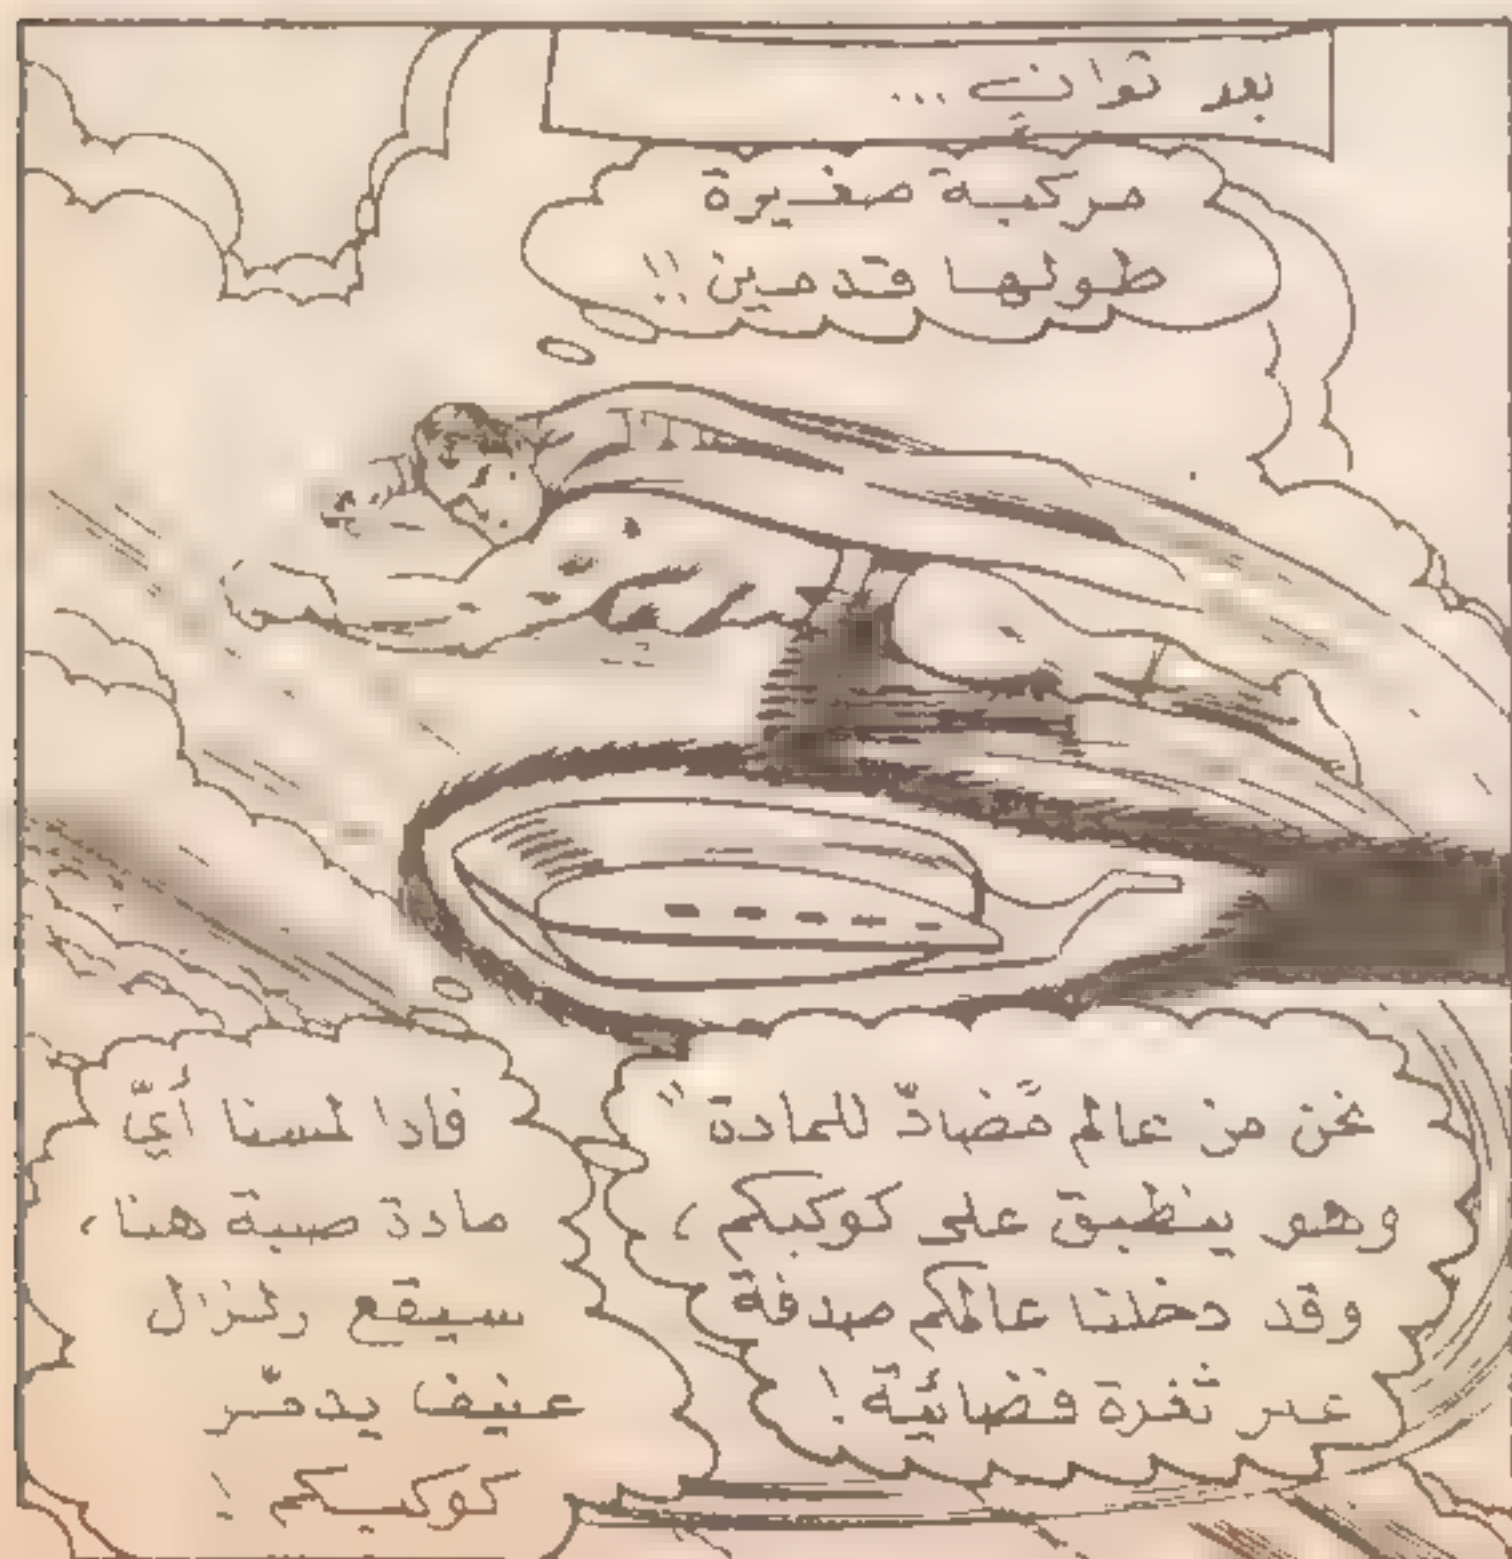 بعد ثوانٍ ...
مركبة صغيرة
طولها قدمين !!
نحن من عالم مُضادّ للمادة "
وهو ينطبق على كوكبكم ،
وقد دخلنا عالمكم صدفة
عبر ثغرة فضائية !
فاذا لمسنا أيّ
مادة صبة هنا ،
سيقع زلزال
عنيف يدمّر
كوكبكم !